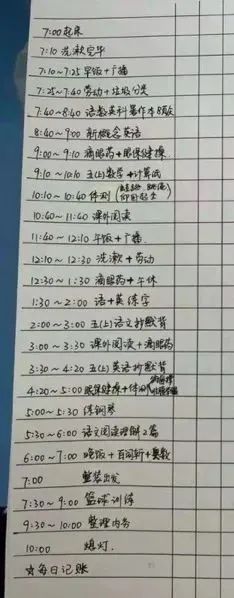 7:00 起床
7:10 洗漱完毕
7:10~7:25 早饭+广播
7:25~7:40 劳动+垃圾分类
7:40~8:40 语数英科暑作本8页
8:40~9:00 新概念英语
9:00~9:10 滴眼药+眼保健操
9:10~10:10 五(上)数学+计算
10:10~10:40 体测(跳绳
仰卧起坐)
10:40~11:40 课外阅读
11:40~12:10 午饭+广播
12:10~12:30 洗漱+劳动
12:30~1:30 滴眼药+午休
1:30~2:00 语+英练字
2:00~3:00 五(上)语文抄默背
3:00~3:30 课外阅读+滴眼药
3:30~4:20 五(上)英语抄默背
4:20~5:00 眼保健操+体测
5:00~5:30 练钢琴
5:30~6:00 语文阅读理解2篇
6:00~7:00 晚饭+百词斩+奥数
7:00 整装出发
7:30~9:00 篮球训练
9:30~10:00 整理内务
10:00 熄灯.
☆每日记账